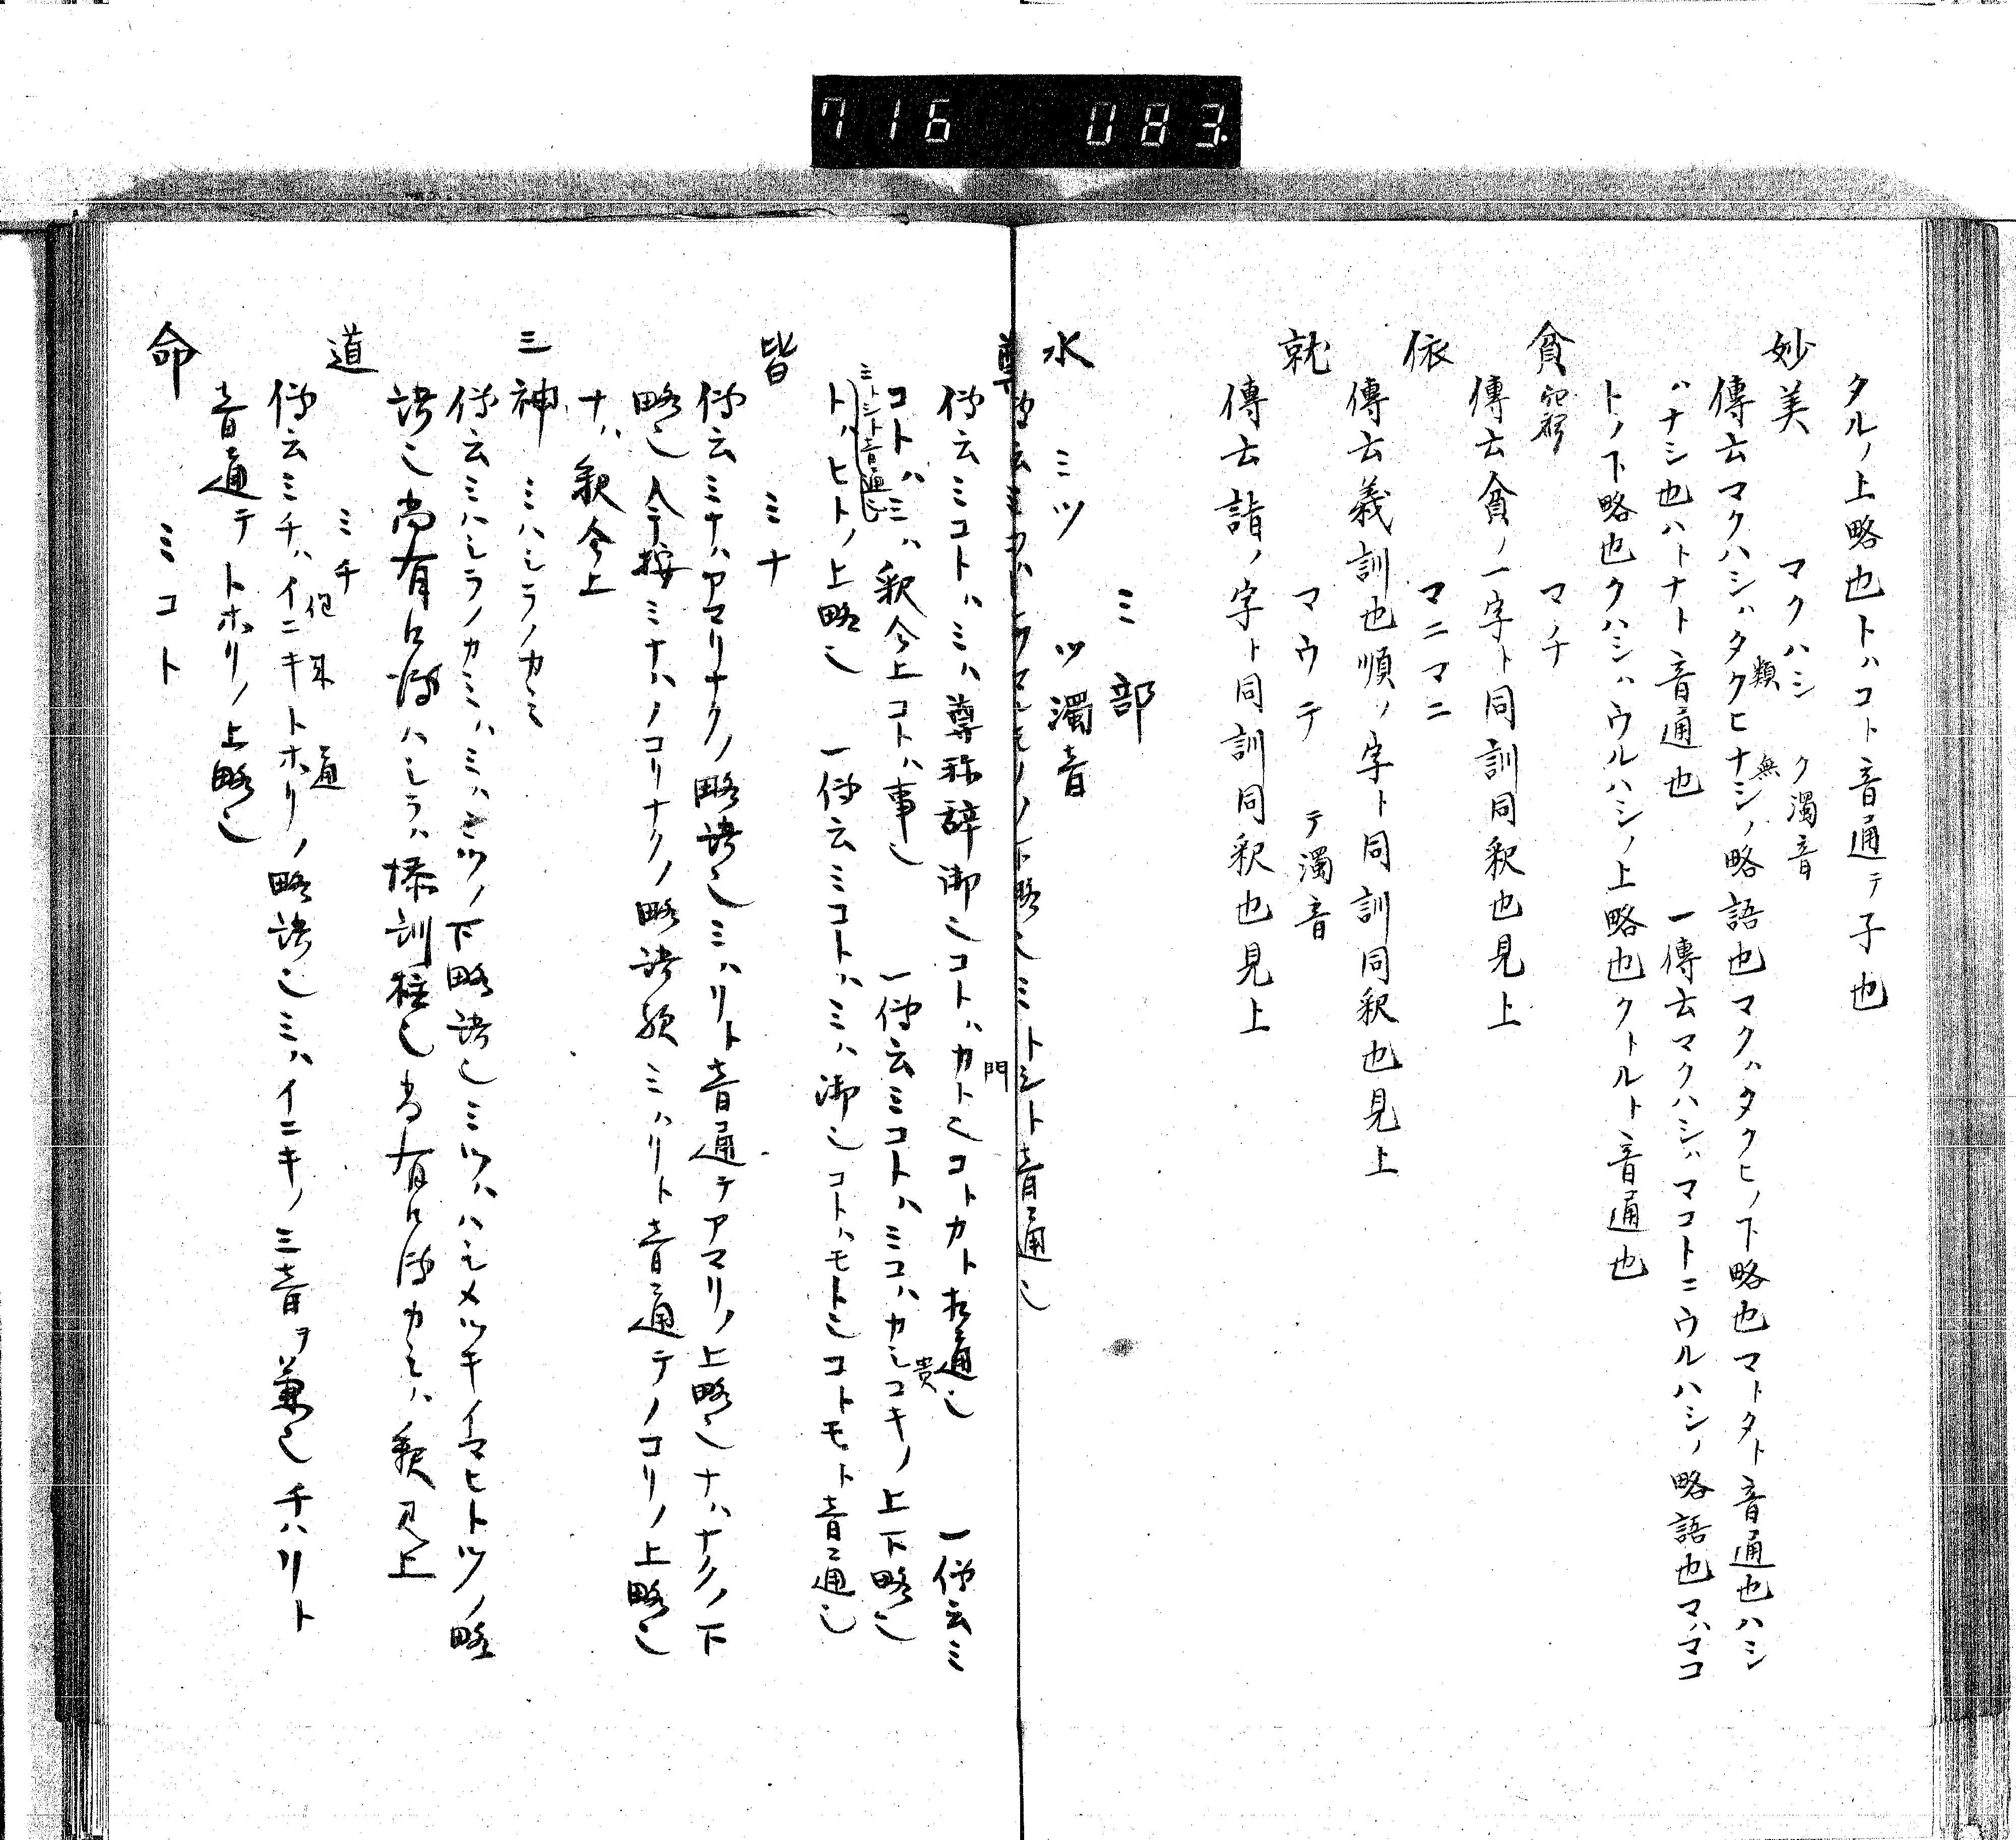 716 083.
タルノ上略也トハコト音通テ子也
妙美 マクハシ ク濁音
傳云マクハシハタクヒナシノ略語也マクハタクヒノ下略也マトタト音通也ハシ
類 無
ハナシ也ハトナト音通也 一傳云マクハシハマコトニウルハシノ略語也マハマコ
トノ下略也クハシハウルハシノ上略也クトルト音通也
貧窮 マチ
傳云貧ノ一字ト同訓同釈也見上
依 マニマニ
傳云義訓也順ノ字ト同訓同釈也見上
就 マウテ テ濁音
傳云詣ノ字ト同訓同釈也見上
ミ部
水 ミツ ツ濁音
尊
傳云ミコトハミハ尊称辞御也コトハカト也コトカト相通也 一傳云ミ
門
コトハミハ釈今上コトハ事也 一傳云ミコトハミコハカシコキノ上下略也
貴
トハヒトノ上略也 一傳云ミコトハミハ御也コトハモト也コトモト音通也
ミトシト音通也
皆 ミナ
傳云ミナハアマリナクノ略語也ミハリト音通テアマリノ上略也ナハナクノ下
略也今按ミナハノコリナクノ略語歟ミハリト音通テノコリノ上略也
ナハ釈今上
三神 ミハシラノカミ
傳云ミハシラノカミハミハミツノ下略語也ミツハハシメツキイマヒトツノ略
語也尚有口傳ハシラハ添訓柱也尚有口傳カミハ釈見上
道 ミチ
傳云ミチハイニキトホリノ略語也ミハイニキノ三音ヲ兼也チハリト
音通テトホリノ上略也
命 ミコト